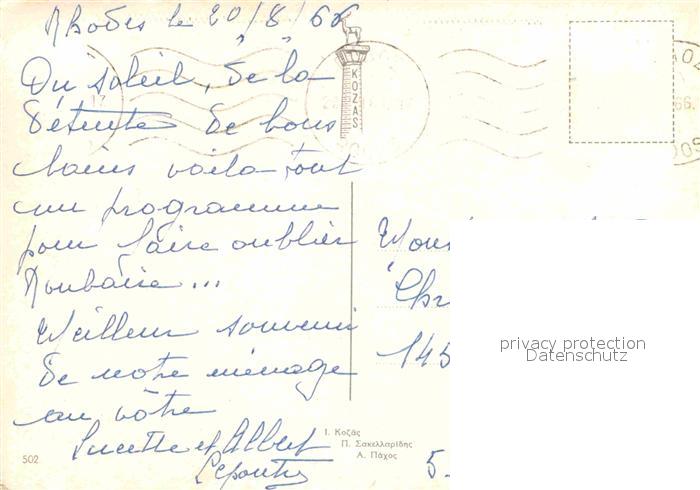 Rhodes le 20/8/66
Du soleil, de la
détente de bons
bains voila tout
un programme
pour faire oublier
Roubaix...
Meilleur souvenir
de notre ménage
au vôtre
Lucette et Albert
KOZAS
Ι. Κοζάς
Π. Σακελλαρίδης
Α. Πάχος
502
145
5.
privacy protection
Datenschutz